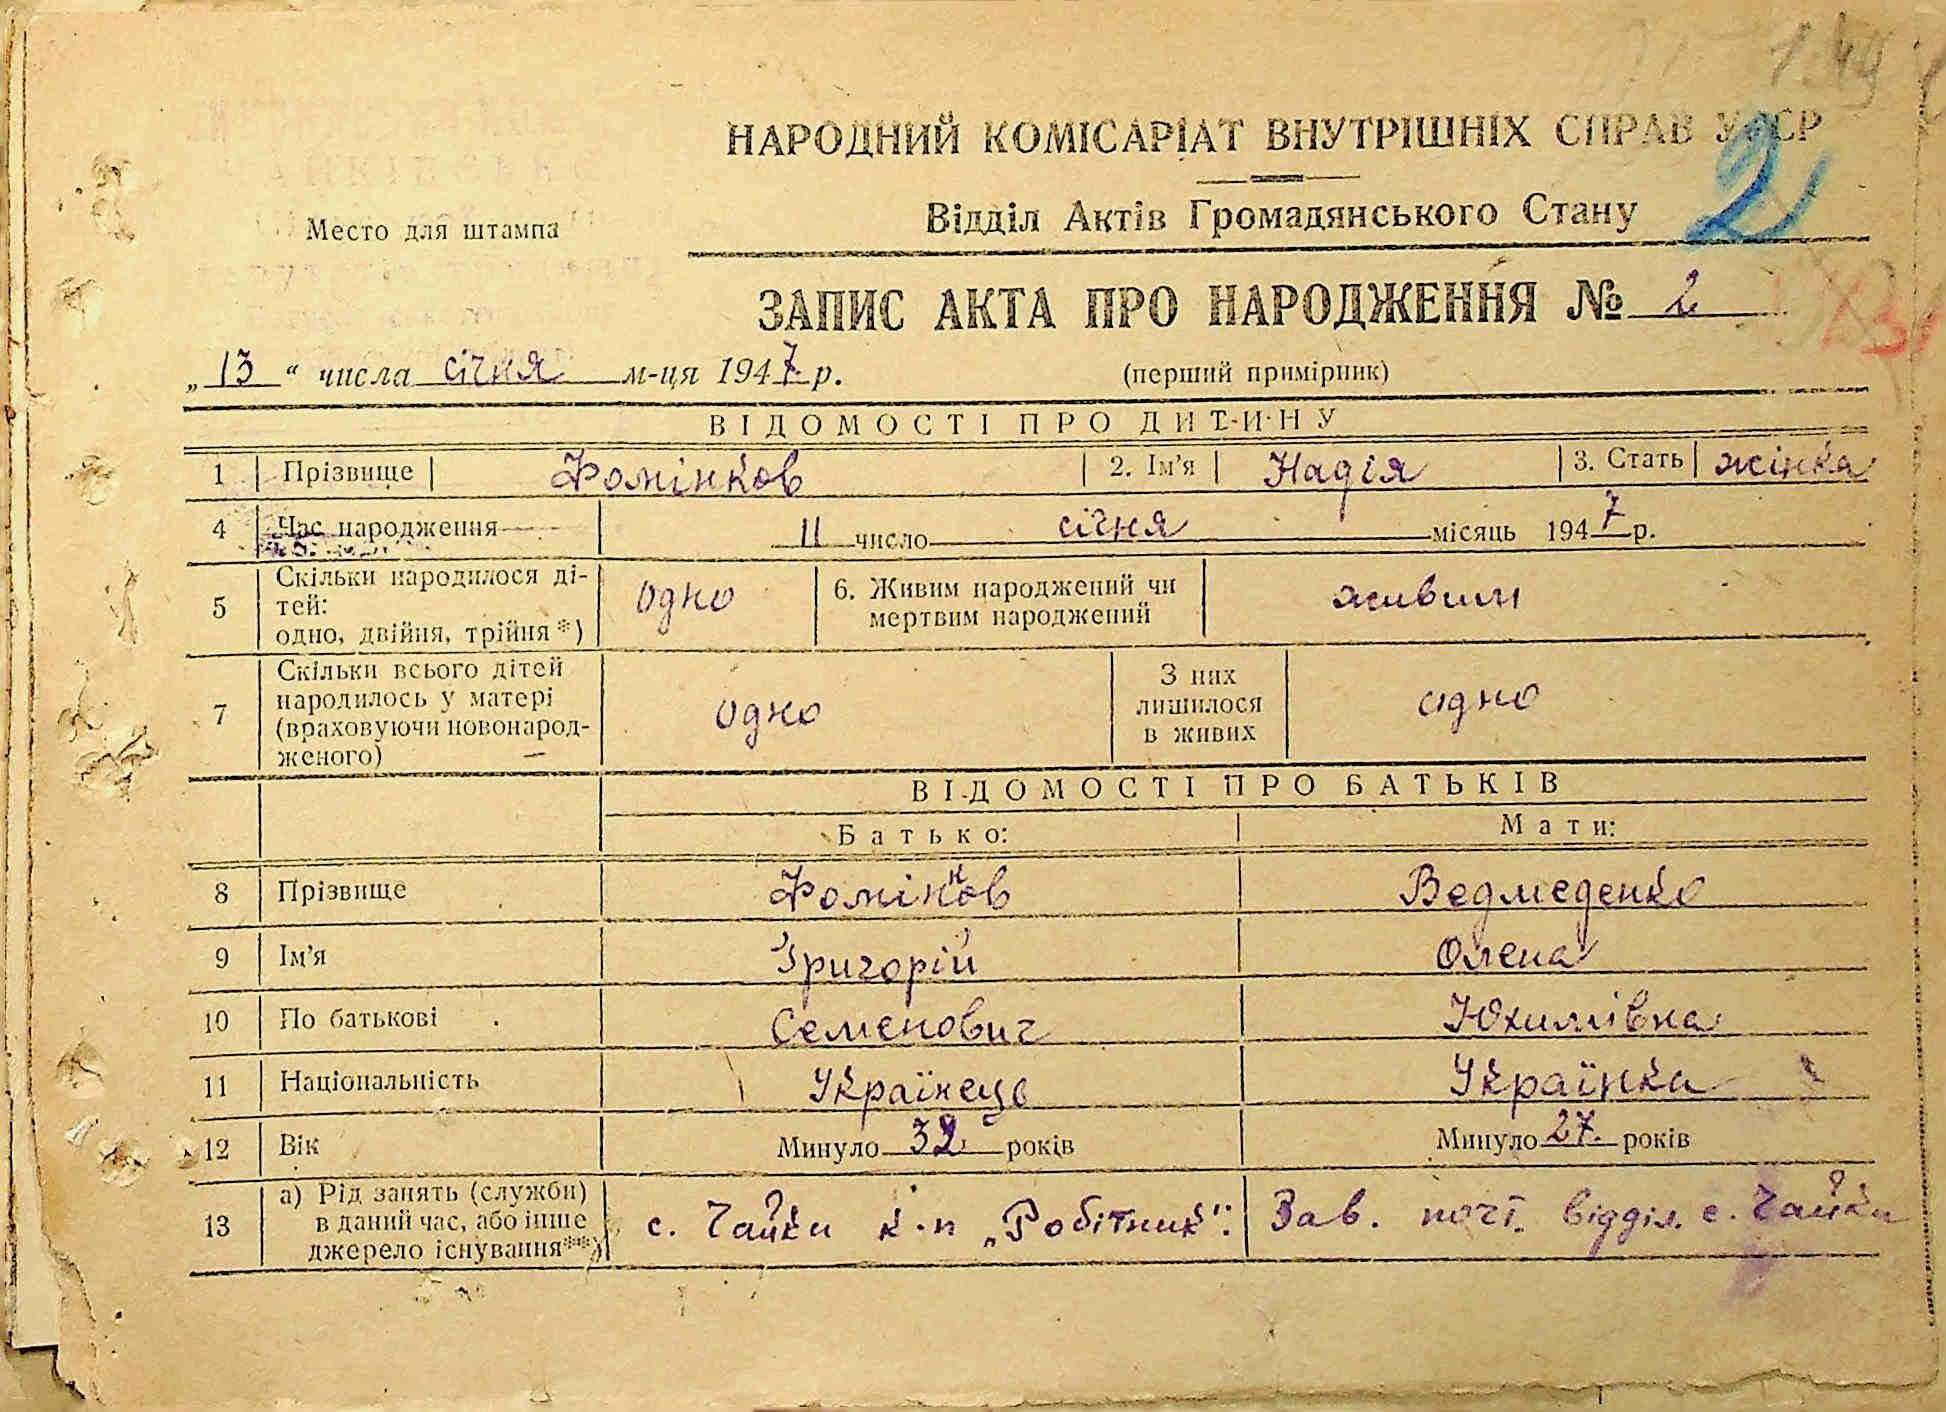 НАРОДНИЙ КОМІСАРІАТ ВНУТРІШНІХ СПРАВ УРСР
2
Место для штампа
Відділ Актів Громадянського Стану
ЗАПИС АКТА ПРО НАРОДЖЕННЯ № 2
„13“ числа січня м-ця 1947 р. (перший примірник)
ВІДОМОСТІ ПРО ДИТИНУ
1 Прізвище Фомінков 2. Ім’я Надія 3. Стать жінка
4 Час народження 11 число січня місяць 1947 р.
5 Скільки народилося ді-
тей:
одно, двійня, трійня*) одно 6. Живим народжений чи
мертвим народжений живим
7 Скільки всього дітей
народилось у матері
(враховуючи новонарод-
женого) одно З них
лишилося
в живих одно
ВІДОМОСТІ ПРО БАТЬКІВ
Батько: Мати:
8 Прізвище Фомінков Ведмеденко
9 Ім’я Григорій Олена
10 По батькові Семенович Юхимівна
11 Національність Українець Українка
12 Вік Минуло 32 років Минуло 27. років
13 а) Рід занять (служби)
в даний час, або інше
джерело існування**) с. Чайки к-п „Робітник“. Зав. почт. відділ. с. Чайки